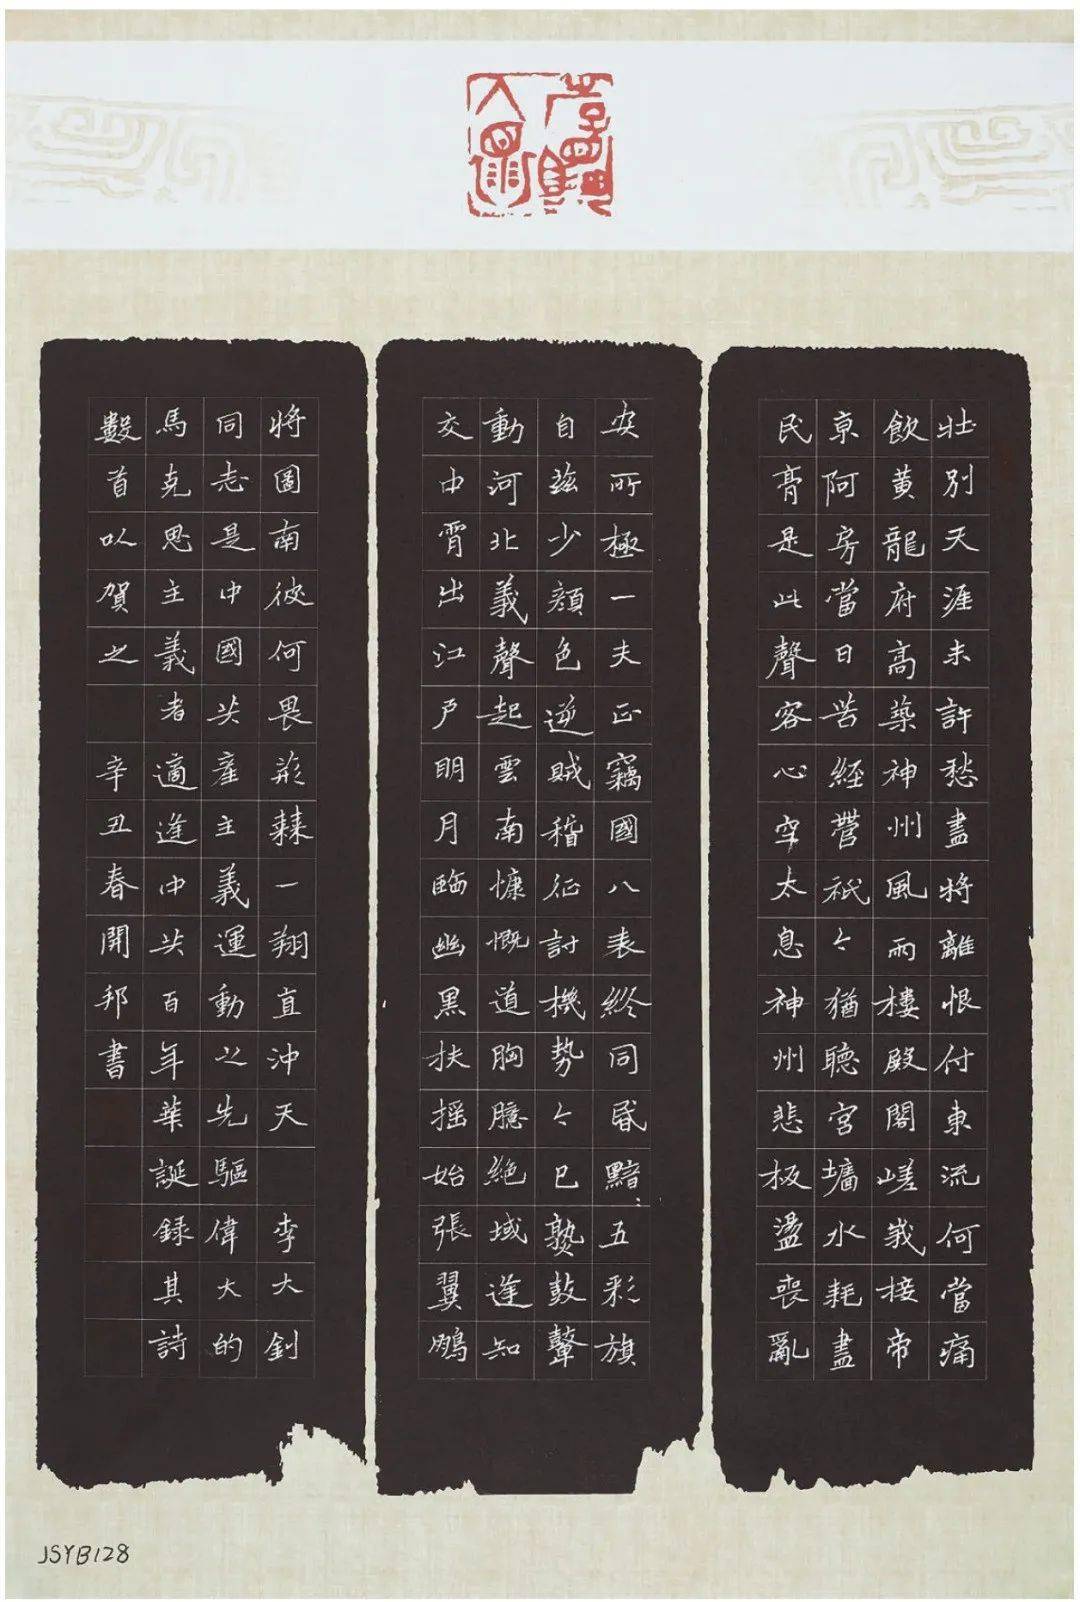 壯別天涯未許愁盡將離恨付東流何當痛
飲黃龍府高築神州風雨樓殿閣嵯峩接帝
京阿房當日苦經營祇今猶聽宮墻水耗盡
民膏是此聲客心空太息神州悲板盪喪亂
安所極一夫正竊國八表終同昏黯五彩旗
自兹少顏色逆賊稽征討機勢今已熟鼓鼙
動河北義聲起雲南慷慨道胸臆絕域逢知
交中宵出江戶明月臨幽黑扶摇始張翼鵬
將圖南彼何畏荊棘一翔直沖天 李大釗
同志是中國共產主義運動之先驅偉大的
馬克思主義者適逢中共百年華誕録其詩
數首以賀之 辛丑春開邦書
JSYB128